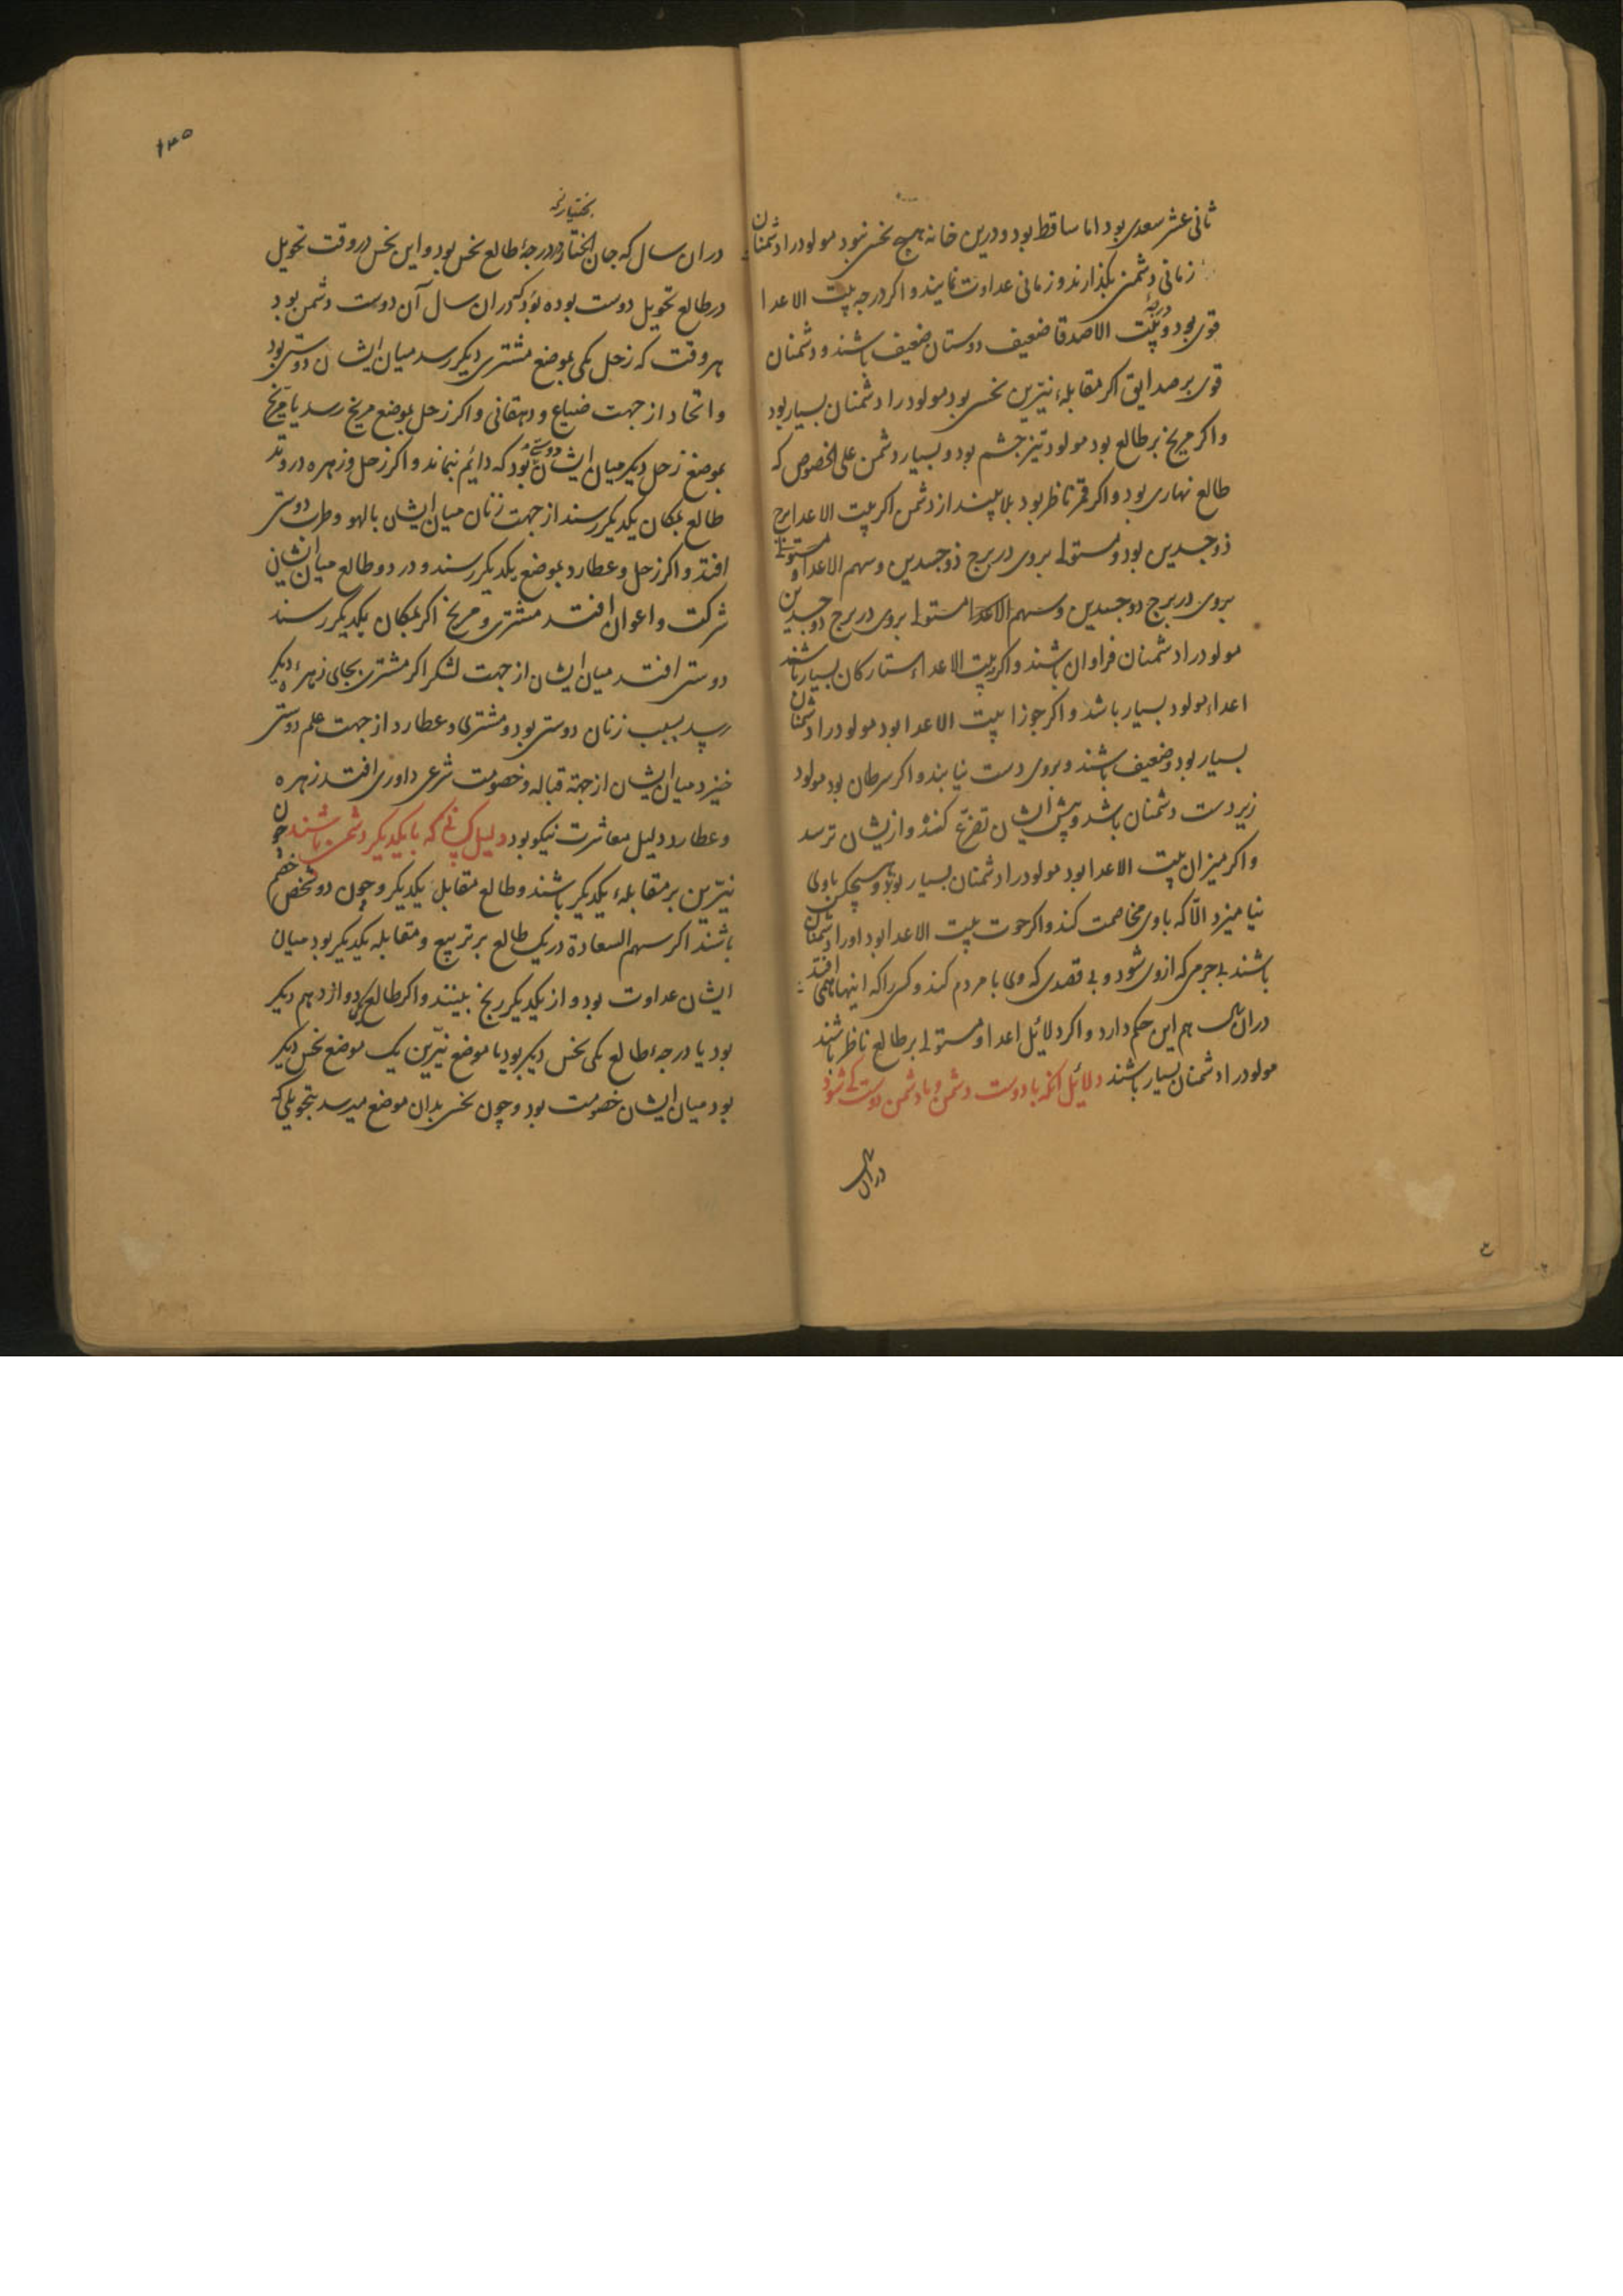 ثانی عشر سعدی بود اما ساقط بود و درین خانه هیچ نحسی نبود مولود را دشمنان
زمانی دشمنی بگذارند و زمانی عداوت نمایند و اکر درجه بیت الاعدا
قوی بود و درجهٔ بیت الاصدقا ضعیف دوستان ضعیف باشند و دشمنان
قوی بر صدایق اکر مقابلهٔ نیّرین نحسی بود مولود را دشمنان بسیار بود
و اکر مریخ بر طالع بود مولود تیز چشم بود و بسیار دشمن علی الخصوص که
طالع نهاری بود و اکر قمر ناظر بود بلا بیند از دشمن اکر بیت الاعدا برج
ذو جسدین بود و مستولے بروی در برج ذو جسدین و سهم الاعدا و مستولے
بروی در برج ذو جسدین و سهم الاعدا مستولے بروی در برج ذو جسدین
مولود را دشمنان فراوان باشند و اکر بیت الاعداء ستارکان بسیار باشند
اعداء مولود بسیار باشد و اکر جوزا بیت الاعدا بود مولود را دشمنان
بسیار بود و ضعیف باشند و بروی دست نیابند و اکر سرطان بود مولود
زیر دست دشمنان باشد و پیش ایشان تضرّع کند و از یشان ترسد
و اکر میزان بیت الاعدا بود مولود را دشمنان بسیار بود و هیچکس باوی
نیامیزد الّا که باوی مخاصمت کند و اکر حوت بیت الاعدا بود او را دشمنان
باشند بے جرمی که ازوی شود و بے قصدی که وی با مردم کند و کسی را که اینها همی افتد
دران سال هم این حکم دارد و اکر دلائل اعدا و مستولے بر طالع ناظر باشند
مولود را دشمنان بسیار باشند دلائل آنکه با دوست دشمن و با دشمن دوست کے شود
دران سال
۱۳۵
دران سال که جان بختیار در درجهٔ طالع نحس بود و این نحس در وقت تحویل
در طالع تحویل دوست بوده بود که دران سال آن دوست دشمن بود
هر وقت که زحل یکی بموضع مشتری دیکر رسد میان ایشان دوستی بود
و اتحاد از جهت ضیاع و دهقانی و اکر زحل بموضع مریخ رسد یا مریخ
بموضع زحل دیکر میان ایشان دوستے بود که دائم نماند و اکر زحل و زهره در وتد
طالع بمکان یکدیکر رسند از جهت زنان میان ایشان بالهو و طرب دوستی
افتد و اکر زحل و عطارد بموضع یکدیکر رسند و در دو طالع میان ایشان
شرکت و اعوان افتد مشتری و مریخ اکر بمکان یکدیکر رسند
دوستی افتد میان ایشان از جهت لشکر اکر مشتری بجای زهرهٔ دیکر
رسد بسبب زنان دوستی بود و مشتری و عطارد از جهت علم دوستی
خیزد میان ایشان از جهة قباله و خصومت شرعی داوری افتد زهره
و عطارد دلیل معاشرت نیکو بود دلیل کسانے که با یکدیکر دشمن باشند چون
نیّرین بر مقابلهٔ یکدیکر باشند و طالع مقابل یکدیکر و چون دو شخص خصم
باشند اکر سهم السعادة در یک طالع بر تربیع و مقابله یکدیکر بود میان
ایشان عداوت بود و از یکدیکر رنج بینند و اکر طالع یکی دوازدهم دیکر
بود یا درجهٔ طالع یکی نحس دیکر بود یا موضع نیّرین یک موضع نحس دیکر
بود میان ایشان خصومت بود و چون نحسی بدان موضع میرسد بتحویلی که